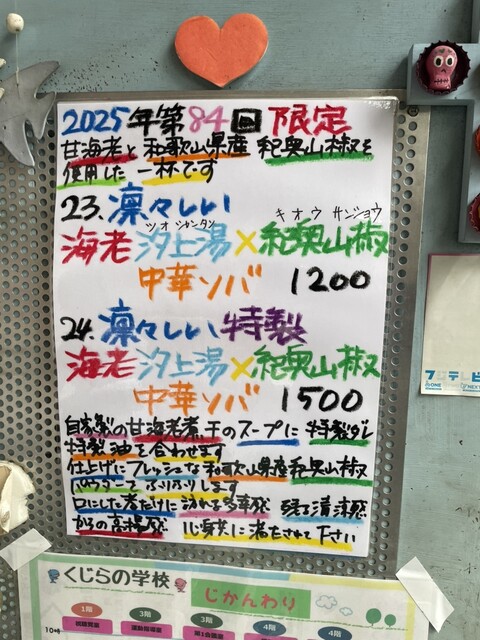 2025年第84回限定
甘海老と和歌山県産紀奥山椒を
使用した一杯です
23.凛々しい
ツオシャンタン キオウサンジョウ
海老汐上湯×紀奥山椒
中華ソバ 1200
24.凛々しい特製
海老汐上湯×紀奥山椒
中華ソバ 1500
自家製の甘海老煮干のスープに特製ダレ
特製油を合わせます
仕上げにフレッシュな和歌山県産紀奥山椒
パウダーでふりふりします
口にした者だけに訪れる多幸感 残る清涼感
からの高揚感 心身共に満たされて下さい
フジテレビ
くじらの学校
じかんわり
1階
3階
3階
4階
4階
10時